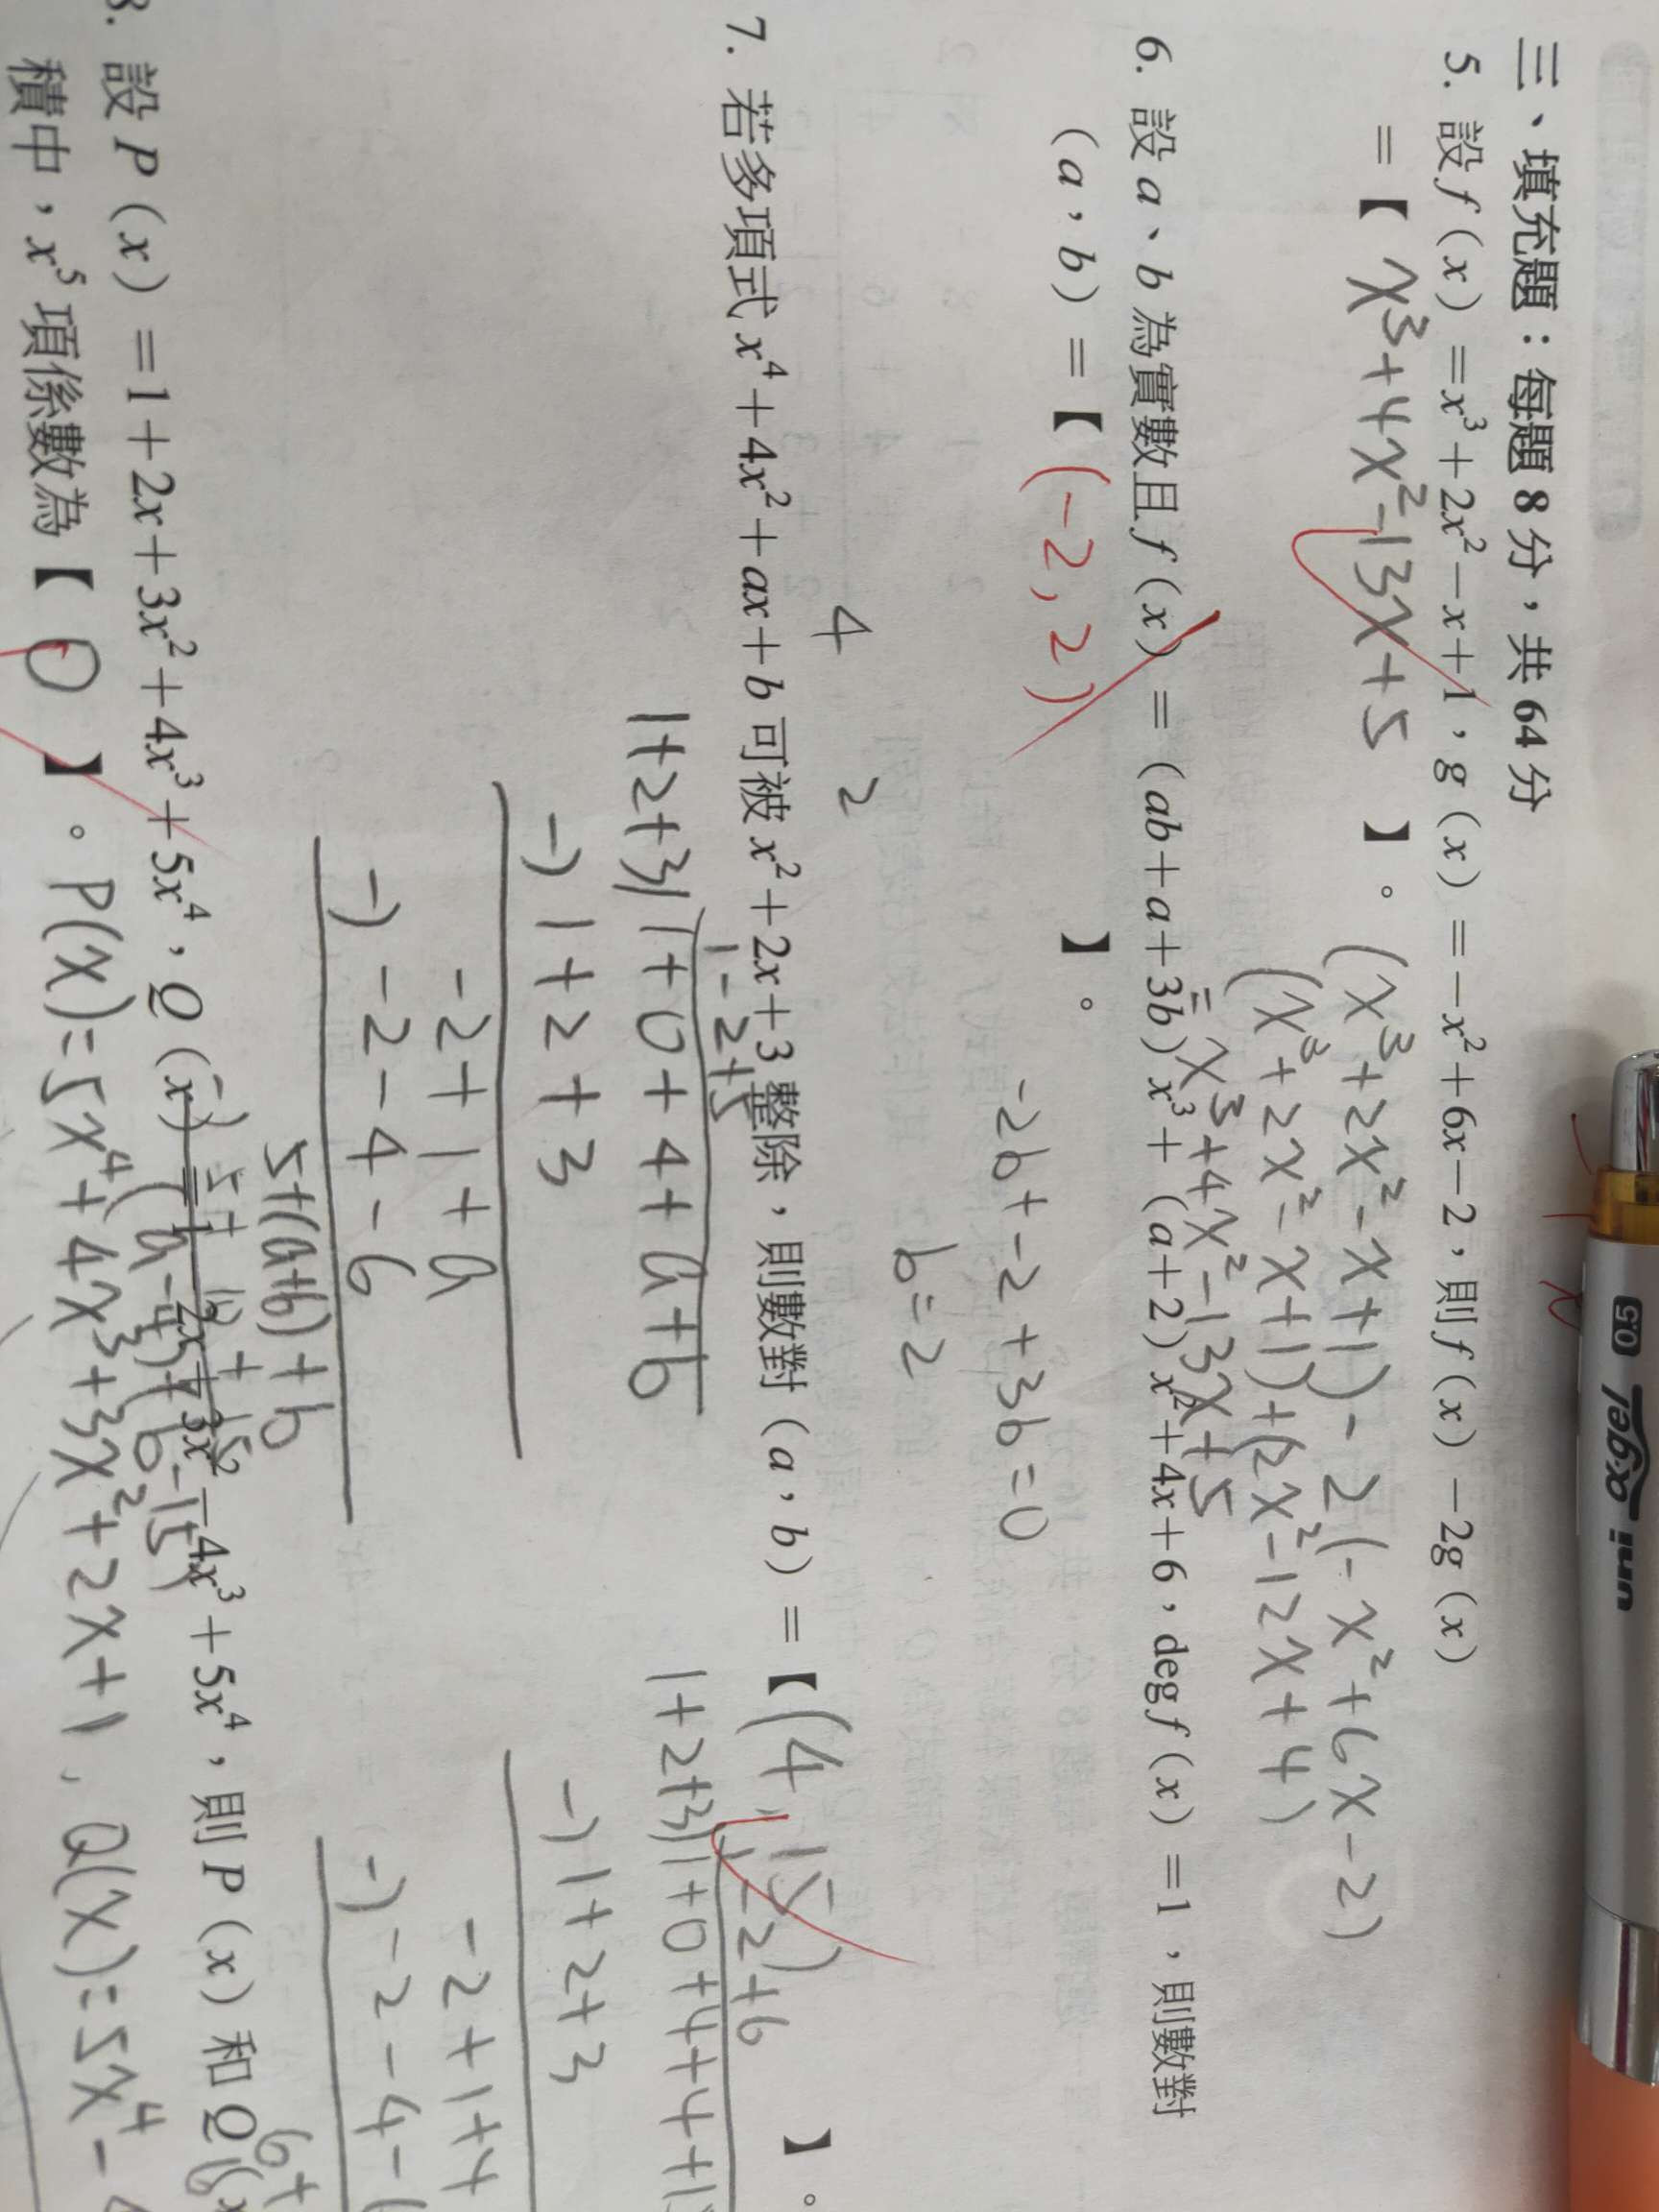 三、填充題：每題 8 分，共 64 分
5. 設 f（x）=x³+2x²−x+1，g（x）=−x²+6x−2，則 f（x）−2g（x）
=【 x³+4x²-13x+5 】。
(x³+2x²-x+1)-2(-x²+6x-2)
(x³+2x²-x+1)+(2x²-12x+4)
=x³+4x²-13x+5
6. 設 a、b 為實數且 f（x）=（ab+a+3b）x³+（a+2）x²+4x+6，deg f（x）=1，則數對
（a，b）=【 (-2,2) 】。
-2b+-2+3b=0
b=2
4
2
7. 若多項式 x⁴+4x²+ax+b 可被 x²+2x+3 整除，則數對（a，b）=【 (4,15) 】。
1-2+5
1+2+3 1+0+4+a+b
-) 1+2+3
-2+1+a
-) -2-4-6
5+(a+6)+b
-) 5+10+15
(a-4)+(b-15)
1-2+6
1+2+3 1+0+4+4+1
-) 1+2+3
-2+1+4
-) -2-4-
6+
8. 設 P（x）=1+2x+3x²+4x³+5x⁴，Q（x）=1−2x+3x²−4x³+5x⁴，則 P（x）和 Q（x
積中，x⁵ 項係數為【 0 】。
P(x)=5x⁴+4x³+3x²+2x+1, Q(x)=5x⁴-
uni α-gel 0.5